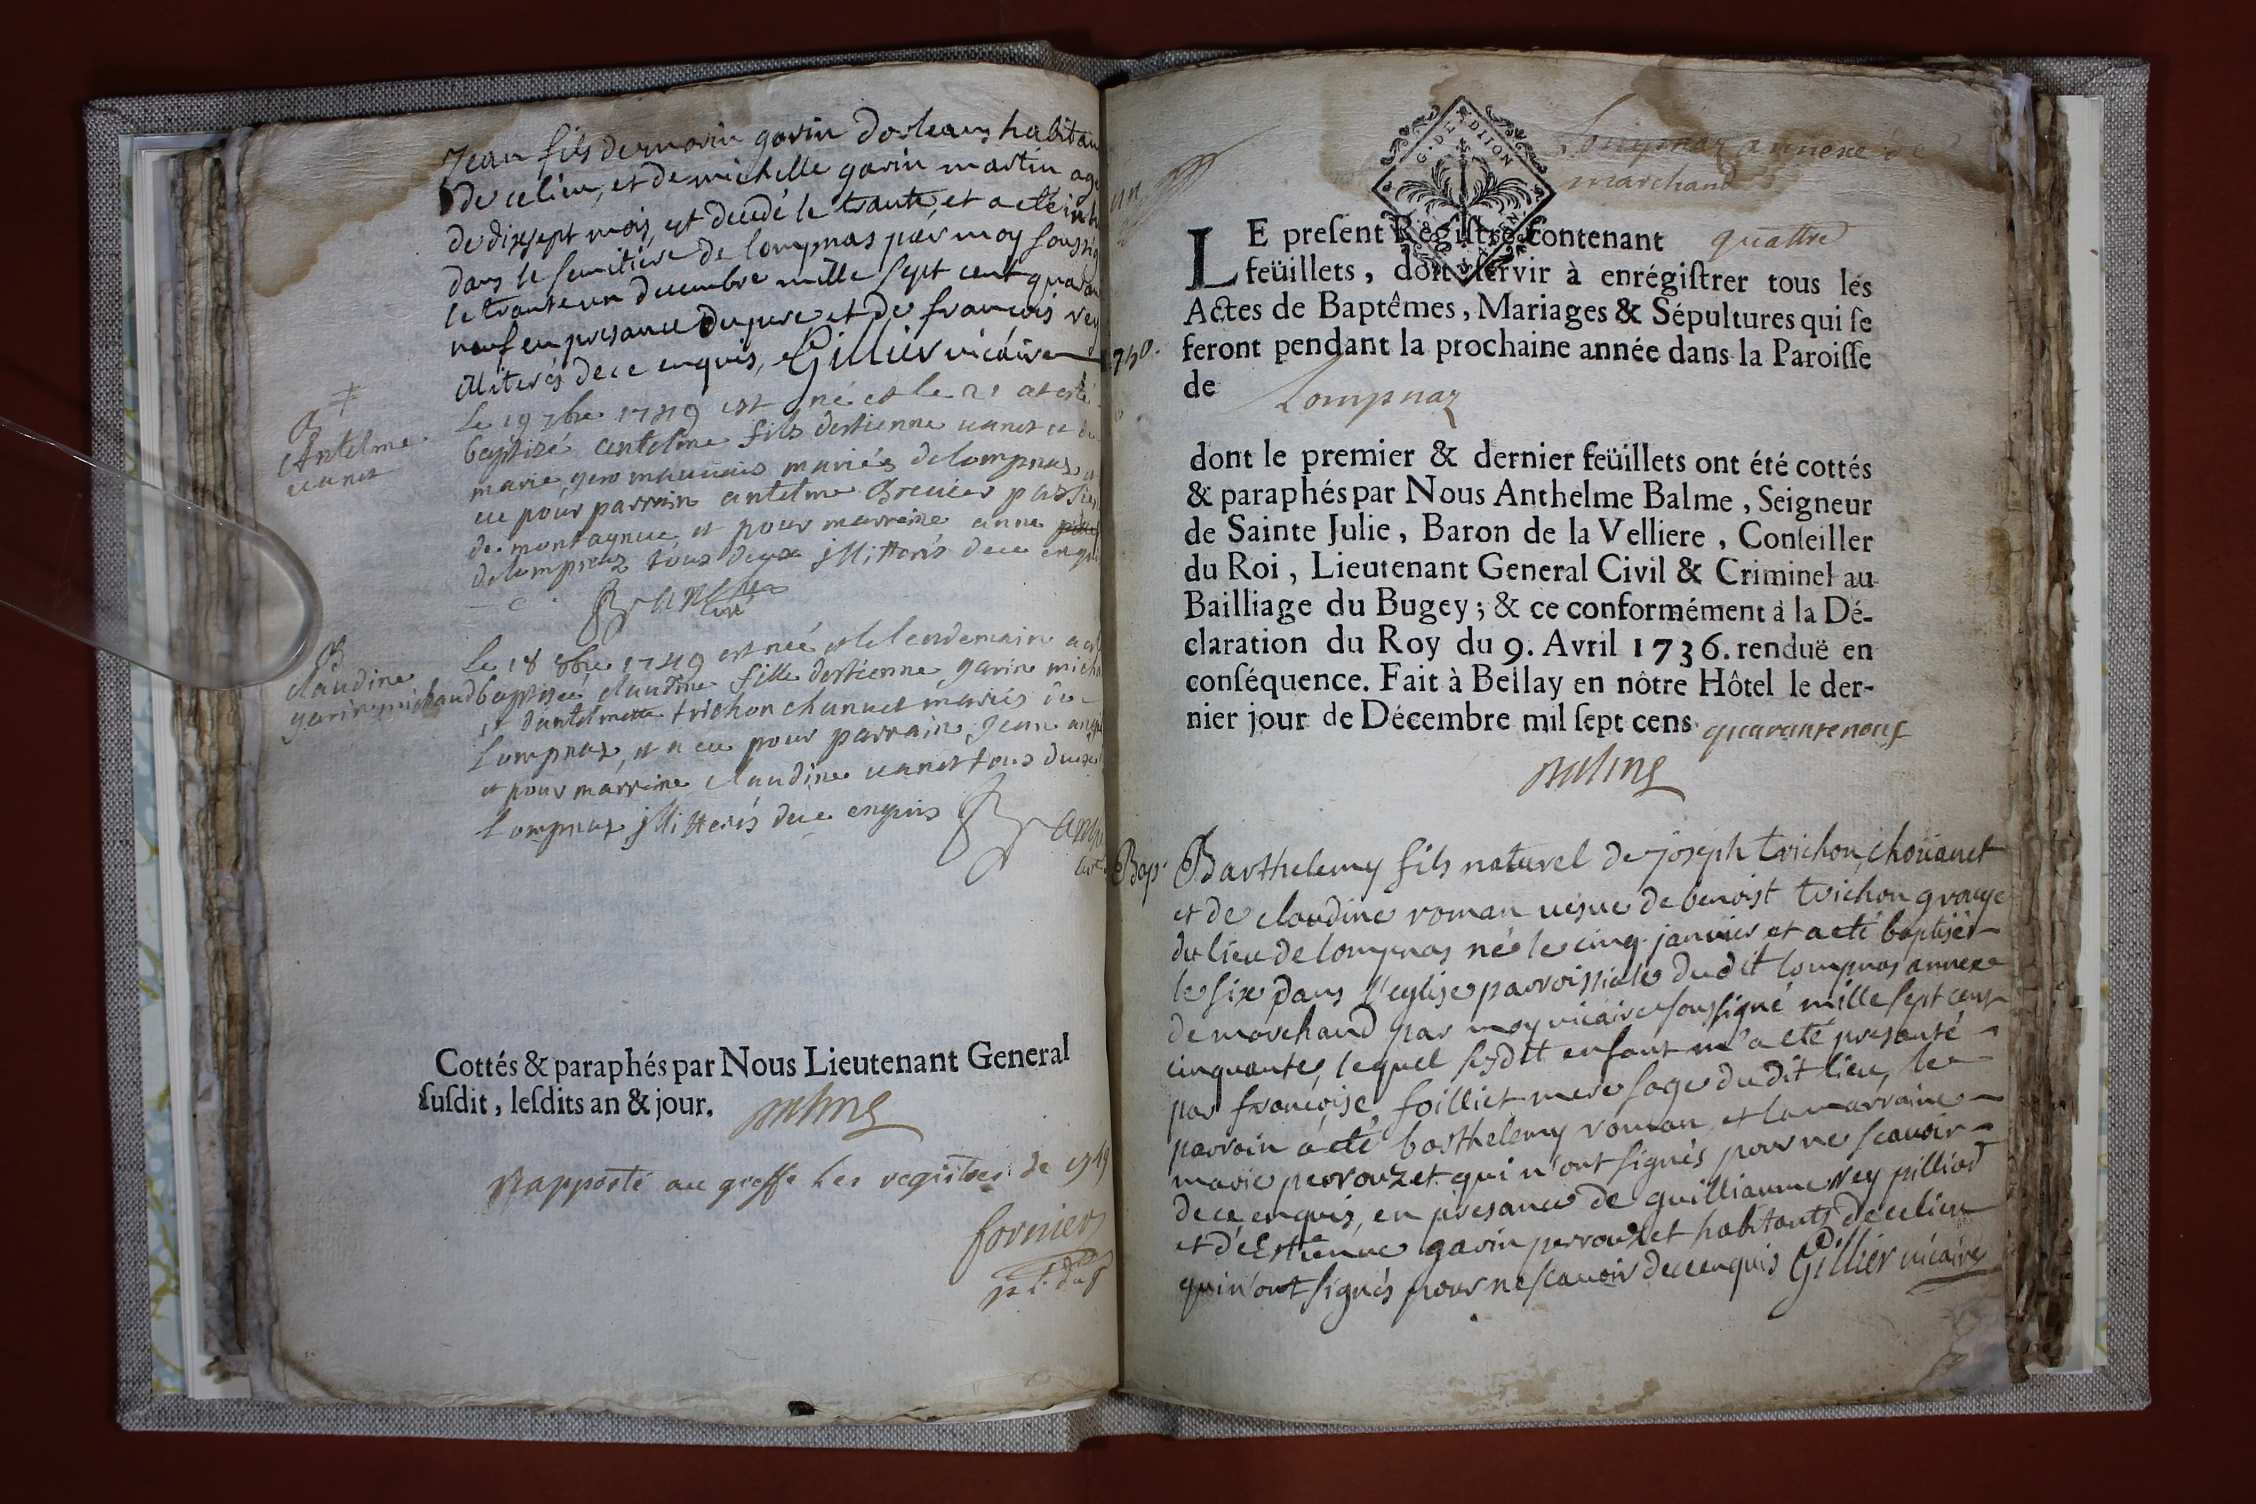 Jean fils de marin garin dorleans habitan
de ce lieu, et de michelle garin martin agé
de dixsept mois, est decedé le trante, et a eté inh
dans le semitière de lompnas par moy soussig
le trante un decembre mille sept cent quaran
neuf en presance du pere et de francois rey
illiterés de ce enquis, Gillier vicaire
B
Antelme
vanet
Le 19 7bre 1749 est né et le 21 at esté
baptisé antelme fils destienne vanet et de
marie mariés de lompnas, a
eu pour parrain antelme
de montagneu et pour marreine anne
de lompnaz tous deux illitterés de ce enquis
B
claudine
garin michaud
Le 18 8bre 1749 est née et le lendemain a est
baptisée claudine fille destienne garin micha
et dantelmette trichon chanuet mariés de
Lompnaz, et a eu pour parrain Jean
et pour marreine claudine vanet tous deux
Lompnaz illitterés de ce enquis
Cottés & paraphés par Nous Lieutenant General
susdit, lesdits an & jour.
Rapporté au greffe les registres de 1749
forniers
G. DE DITION
Lompnaz annexe de
marchand
LE present Régistre contenant quattre
feüillets, doit servir à enrégistrer tous les
Actes de Baptêmes, Mariages & Sépultures qui se
feront pendant la prochaine année dans la Paroisse
1750.
de Lompnaz
dont le premier & dernier feüillets ont été cottés
& paraphés par Nous Anthelme Balme, Seigneur
de Sainte Julie, Baron de la Velliere, Conseiller
du Roi, Lieutenant General Civil & Criminel au
Bailliage du Bugey; & ce conformément à la Dé-
claration du Roy du 9. Avril 1736. renduë en
conséquence. Fait à Bellay en nôtre Hôtel le der-
nier jour de Décembre mil sept cens quarante neuf
Balme
Bap. Barthelemy fils naturel de joseph trichon, choüanet
et de claudine roman vesve de benoist trichon
du lieu de lompnas né le cinq janvier et a eté baptisé
le six dans l'eglise parroissiale dudit lompnas annexe
de marchand par moy vicaire soussigné mille sept cent
cinquante, lequel susdit enfant m'a eté presanté
par francoise foilliet mere sage du dit lieu, le
parrain a eté barthelemy roman, et la marraine
marie perrouzet qui n'ont signés pour ne scavoir
de ce enquis, en presance de guilliaume rey pilliod
et d'Estienne garin perrouzet habitants de ce lieu
qui n'ont signés pour ne scavoir de ce enquis Gillier vicaire